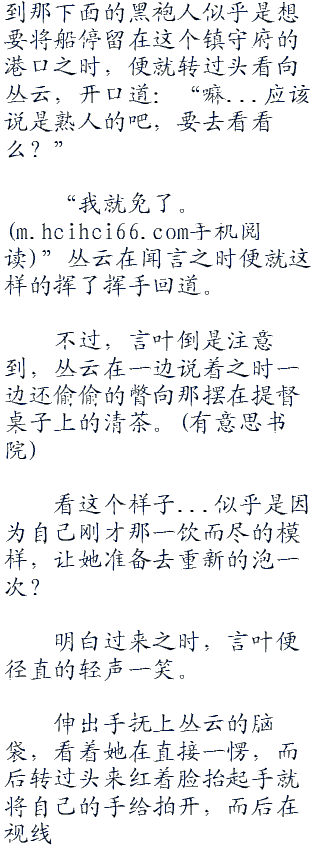 到那下面的黑袍人似乎是想
要将船停留在这个镇守府的
港口之时，便就转过头看向
丛云，开口道：“嘛...应该
说是熟人的吧，要去看看
么？”
“我就免了。
(m.hcihci66.com手机阅
读)”丛云在闻言之时便就这
样的挥了挥手回道。
不过，言叶倒是注意
到，丛云在一边说着之时一
边还偷偷的瞥向那摆在提督
桌子上的清茶。(有意思书
院)
看这个样子...似乎是因
为自己刚才那一饮而尽的模
样，让她准备去重新的泡一
次？
明白过来之时，言叶便
径直的轻声一笑。
伸出手抚上丛云的脑
袋，看着她在直接一愣，而
后转过头来红着脸抬起手就
将自己的手给拍开，而后在
视线